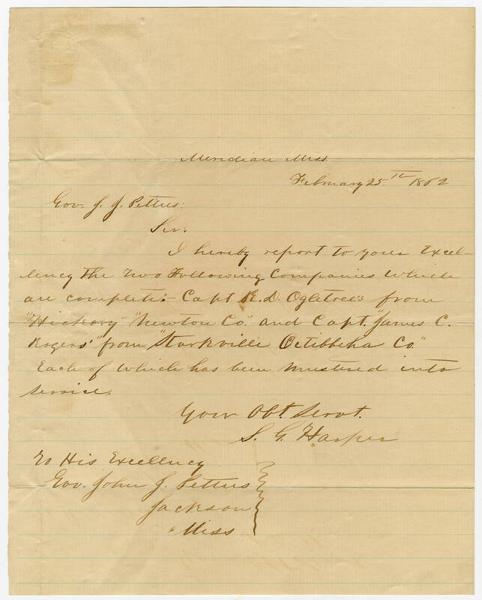 Meridian Miss
February 25th 1862
Gov. J. J. Pettus:
Sir:
I hereby report to your Excel-
lency the two Following Companies which
are complete:- Capt R. D. Ogletree's from
"Hickory" "Newton Co." and Capt. "James C.
Rogers" from "Starkville Octibbeha Co."
Each of which has been mustered into
service.
Your Obt. Servt.
S. G. Harper
To His Excellency
Gov. John J. Pettus
Jackson
Miss